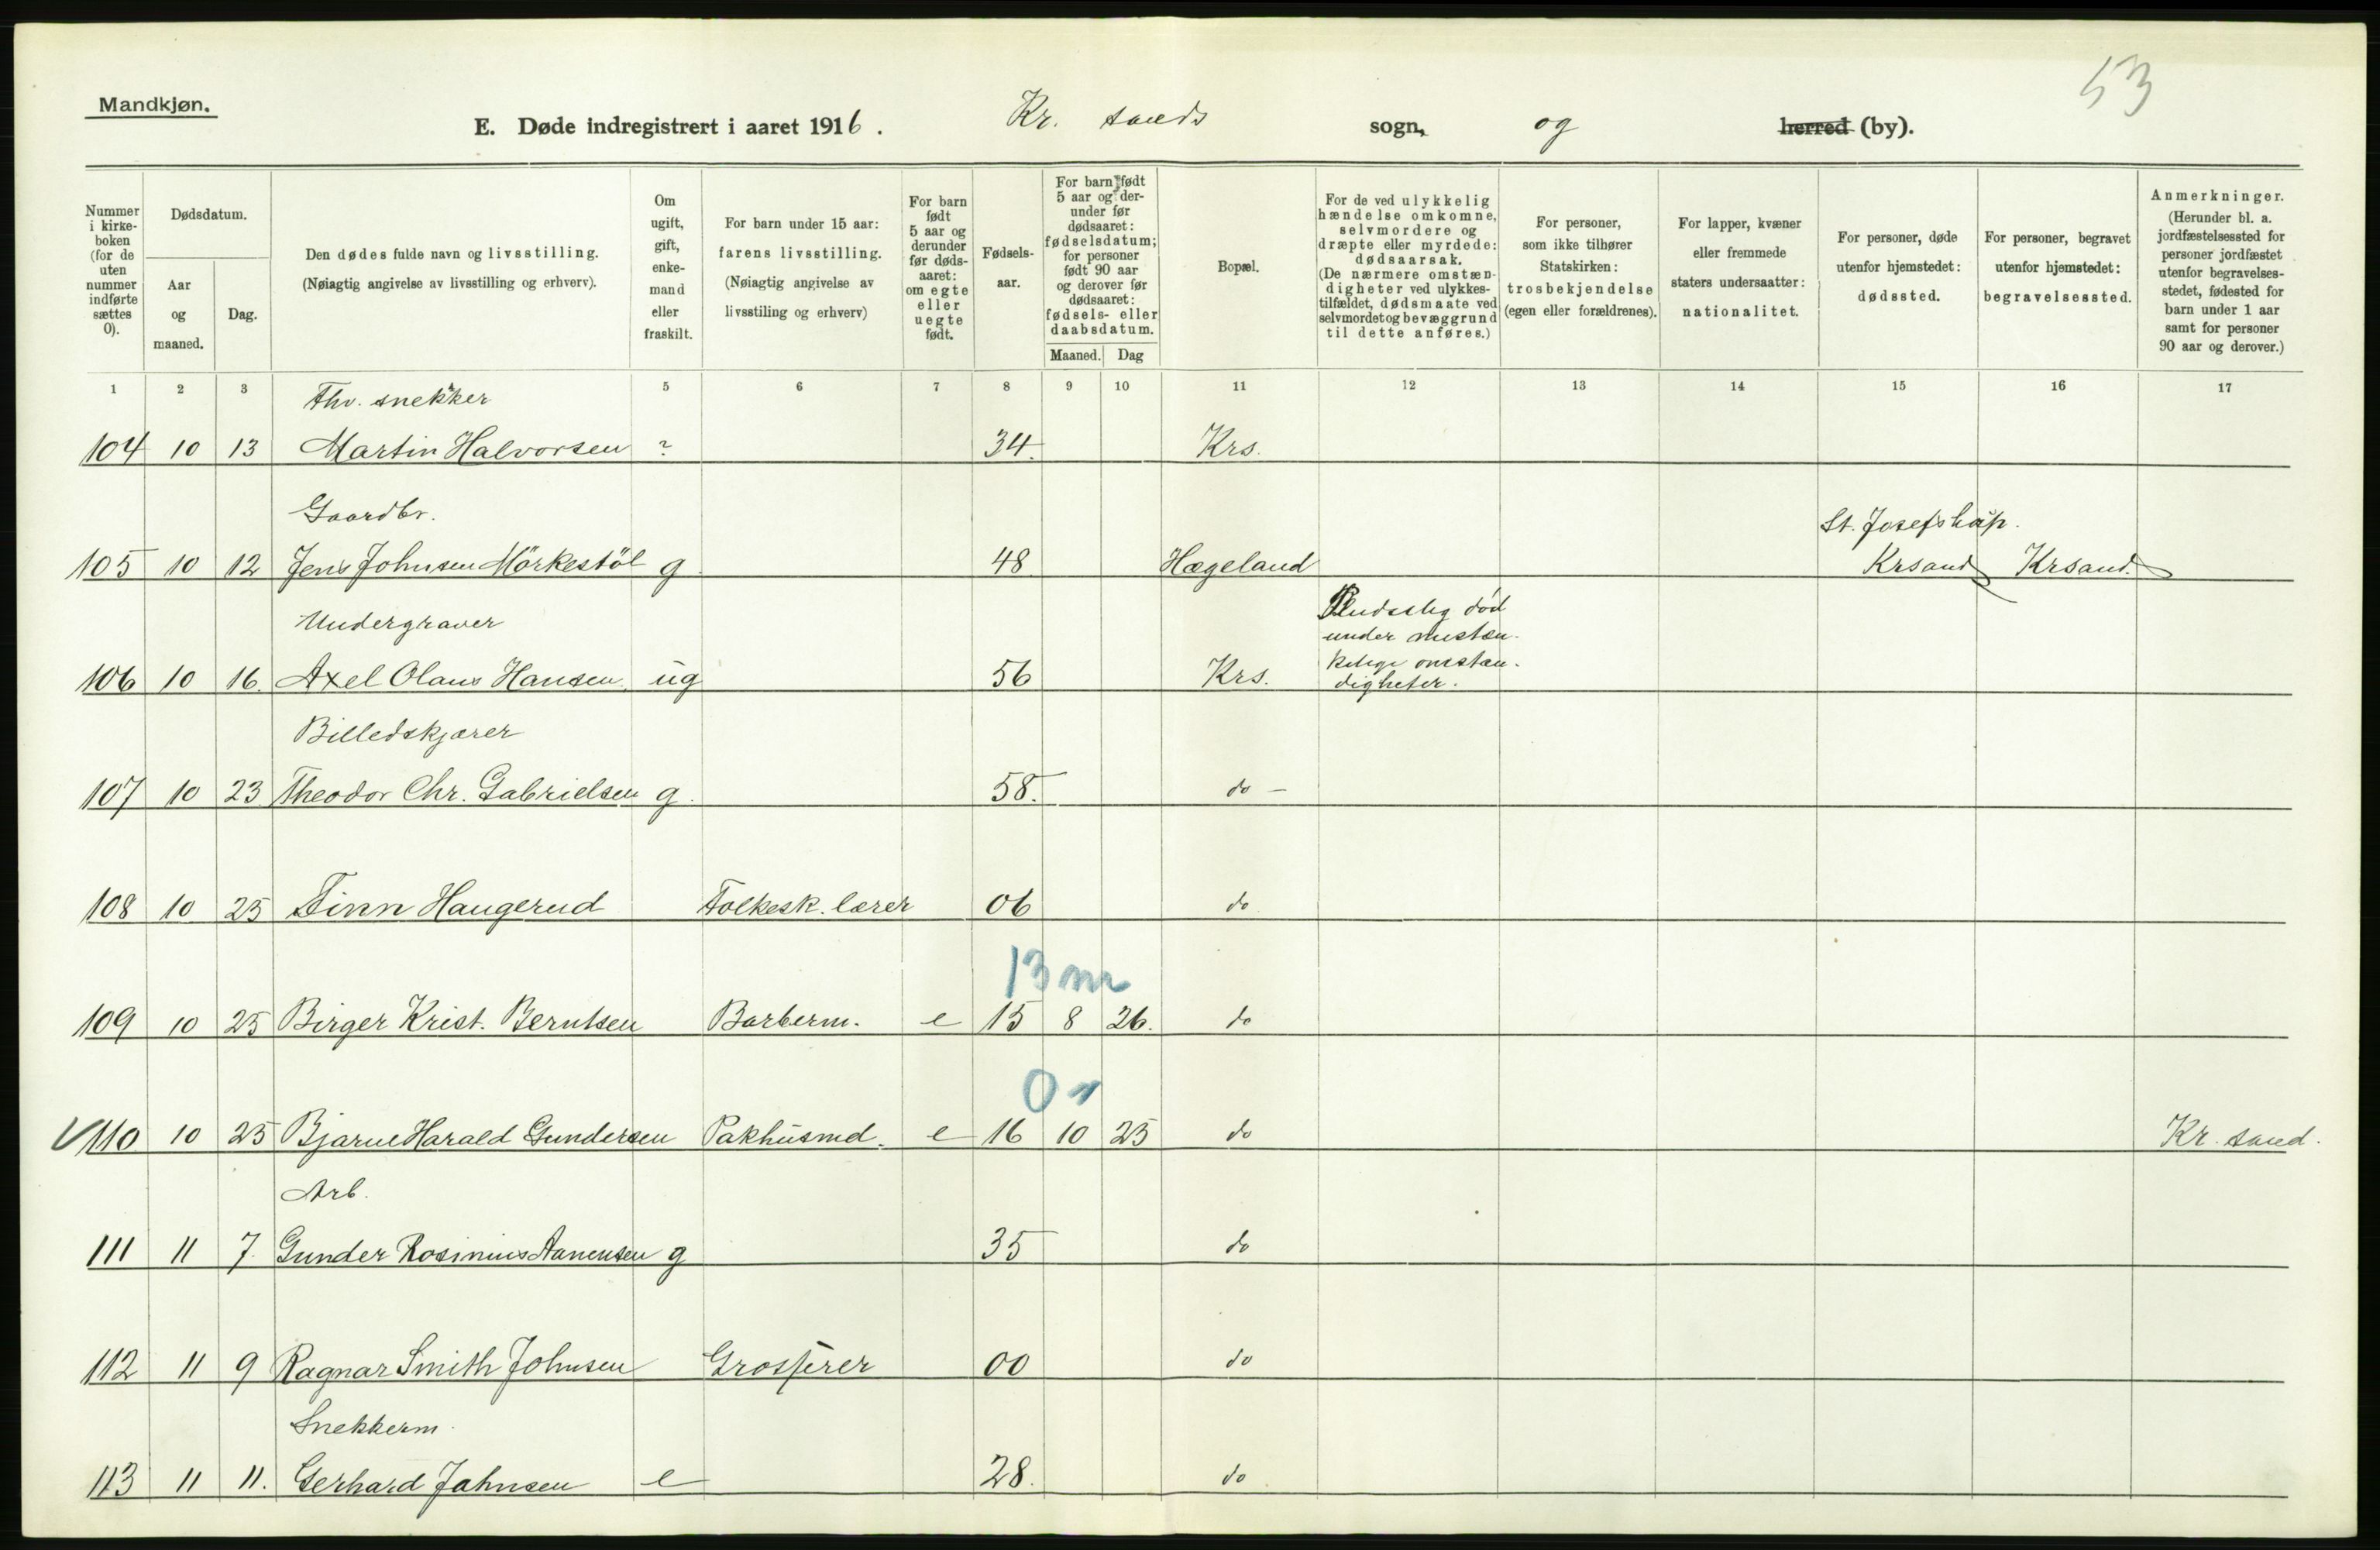 53
Mandkjøn.
E. Døde indregistrert i aaret 1916. Kr. sands sogn, og herred (by).
Nummer i kirkeboken (for de uten nummer indførte sættes 0).
Dødsdatum.
Aar og maaned.
Dag.
Den dødes fulde navn og livsstilling.
(Nøiagtig angivelse av livsstilling og erhverv).
Om ugift, gift, enkemand eller fraskilt.
For barn under 15 aar: farens livsstilling.
(Nøiagtig angivelse av livsstiling og erhverv)
For barn født 5 aar og derunder før dødsaaret: om egte eller uegte født.
Fødselsaar.
For barn født 5 aar og derunder før dødsaaret: fødselsdatum; for personer født 90 aar og derover før dødsaaret: fødsels- eller daabsdatum.
Maaned. Dag
Bopæl.
For de ved ulykkelig hændelse omkomne, selvmordere og dræpte eller myrdede: dødsaarsak.
(De nærmere omstændigheter ved ulykkestilfældet, dødsmaate ved selvmordet og bevæggrund til dette anføres.)
For personer, som ikke tilhører Statskirken: trosbekjendelse (egen eller forældrenes).
For lapper, kvæner eller fremmede staters undersaatter: nationalitet.
For personer, døde utenfor hjemstedet: dødssted.
For personer, begravet utenfor hjemstedet: begravelsessted.
Anmerkninger.
(Herunder bl. a. jordfæstelsessted for personer jordfæstet utenfor begravelsesstedet, fødested for barn under 1 aar samt for personer 90 aar og derover.)
1 2 3 5 6 7 8 9 10 11 12 13 14 15 16 17
Fhv. snekker
104 10 13 Martin Halvorsen ? 34. Krs.
Gaardbr. St. Josefshosp.
105 10 12 Jens Johnsen Mörkestöl g 48 Hægeland Krsand Krsand.
Undergraver Pludselig död
under mistæn-
kelige omstæn-
106 10 16. Axel Olaus Hansen. ug 56 Krs. digheter.
Billedskjærer
107 10 23 Theodor Chr. Gabrielsen g. 58. do -
108 10 25 Finn Haugerud Folkesk. lærer 06 do
13 mr
109 10 25 Birger Krist. Berntsen Barberm. e 15 8 26. do
0
110 10 25 Bjarne Harald Gundersen Pakhusmd. e 16 10 25 do Kr. sand.
Arb.
111 11 7. Gunder Rosinius Aanensen g 35 do
112 11 9 Ragnar Smith Johnsen Grosserer 00 do
Snekkerm.
113 11 11. Gerhard Jahnsen e 28. do